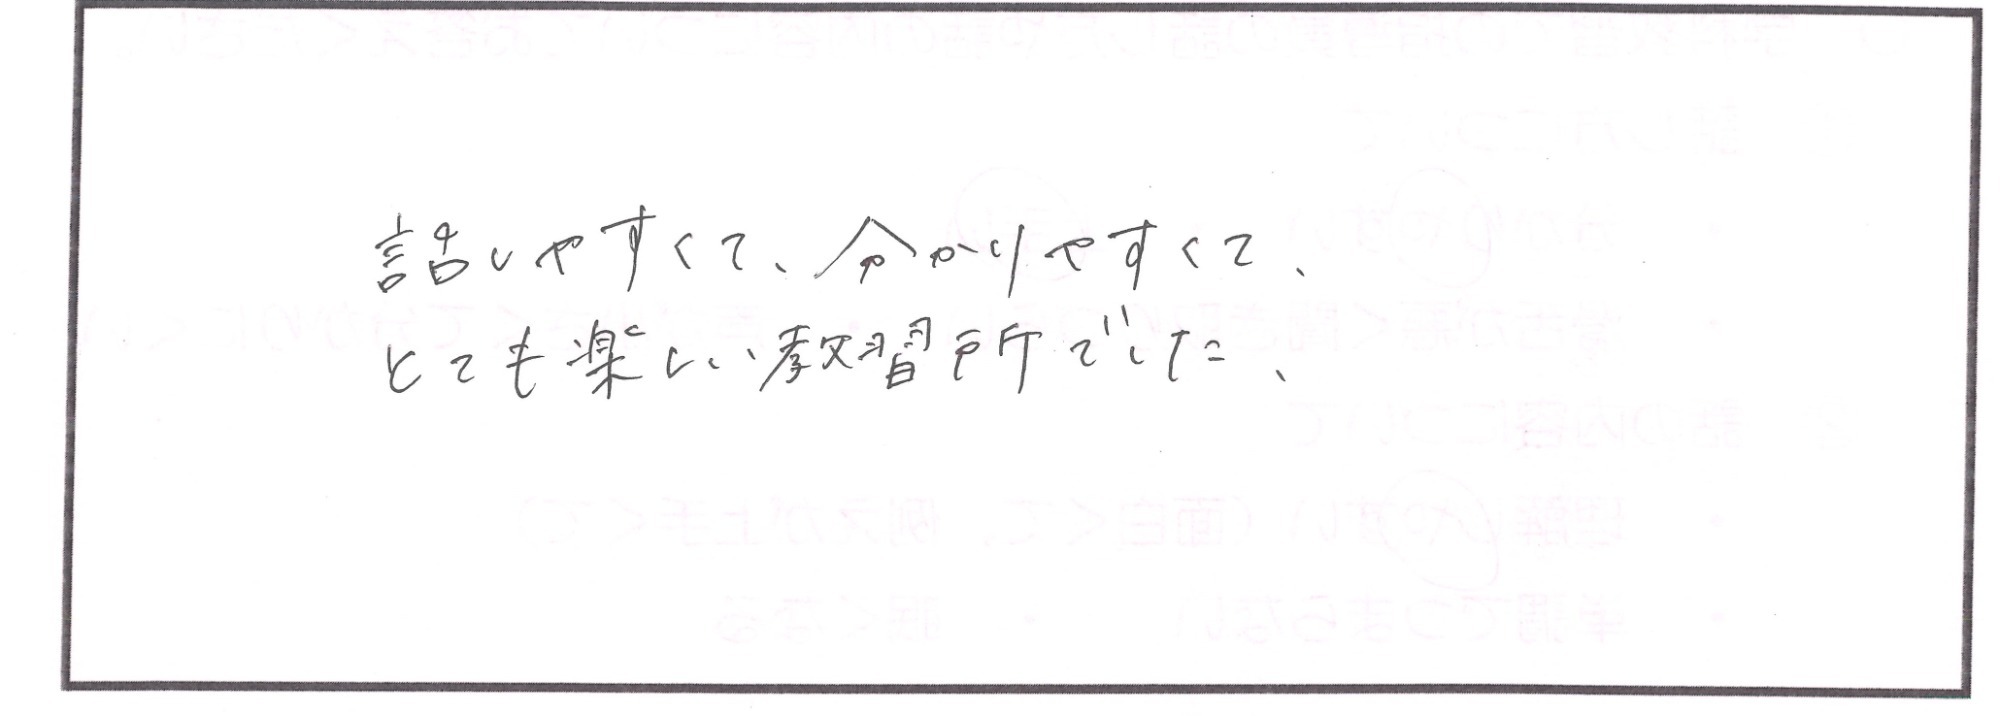 話しやすくて、分かりやすくて、
とても楽しい教習所でした、